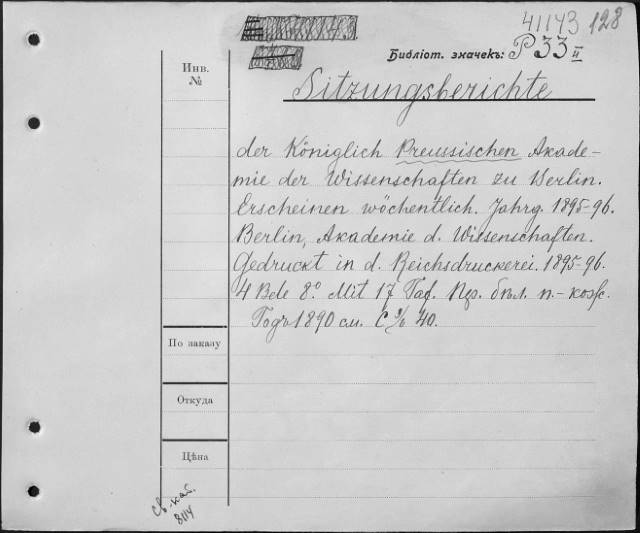 41143 128
Библіот. значекъ: P 33 II
Инв.
№
Sitzungsberichte
der Königlich Preussischen Akade-
mie der Wissenschaften zu Berlin.
Erscheinen wöchentlich. Jahrg. 1895-96.
Berlin, Akademie d. Wissenschaften.
Gedruckt in d. Reichsdruckerei. 1895-96.
4 Bde 8° Mit 17 Taf.
Годъ 1890 см. 40.
По заказу
Откуда
Цѣна
св. кат.
8114